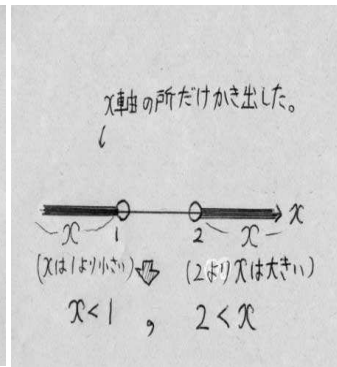 x軸の所だけかき出した。
x
1
2
x
x
(xは1より小さい)
(2よりxは大きい)
x<1 , 2<x